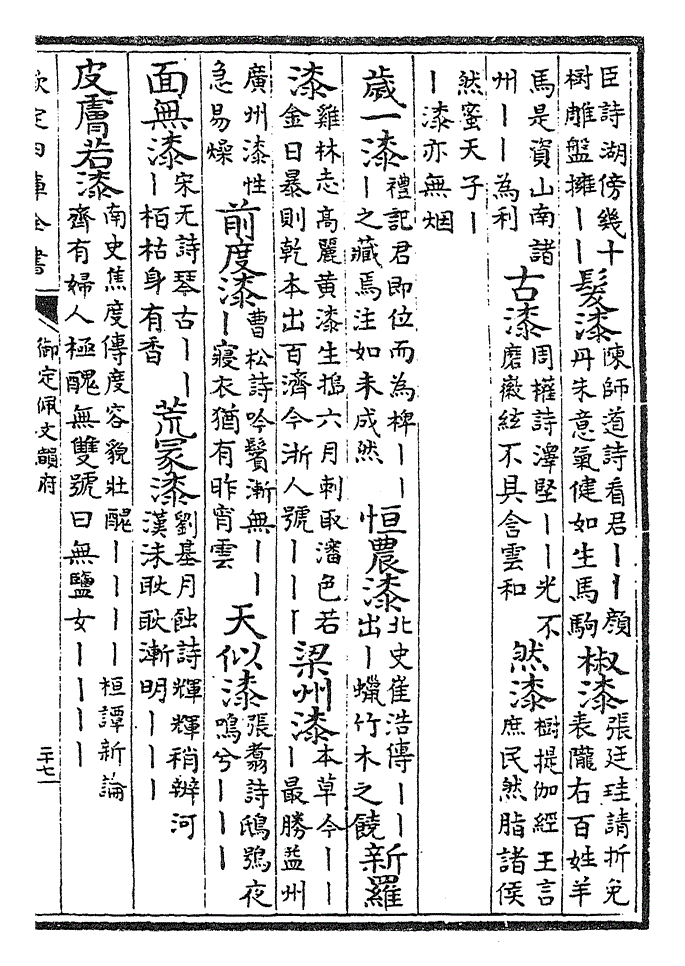 臣詩湖傍幾十
樹雕盤擁丨丨
髮漆
陳師道詩看君丨丨顔
丹朱意氣健如生馬駒
椒漆
張廷珪請折免
表隴右百姓羊
馬是資山南諸
州丨丨為利
古漆
周權詩澤堅丨丨光不
磨徽絃不具含雲和
然漆
樹提伽經王言
庶民然脂諸侯
然蜜天子丨
丨漆亦無烟
歲一漆
禮記君即位而為椑丨丨
丨之藏焉注如未成然
恒農漆
北史崔浩傳丨丨
出丨蠟竹木之饒
新羅
漆
雞林志高麗黄漆生搗六月刺取瀋色若
金日暴則乾本出百濟今浙人號丨丨丨
梁州漆
本草今丨丨
丨最勝益州
廣州漆性
急易燥
前度漆
曹松詩吟鬢漸無丨丨
丨寢衣猶有昨宵雲
天似漆
張翥詩鴟鴞夜
鳴兮丨丨丨
面無漆
宋无詩琴古丨丨
丨栢枯身有香
荒冢漆
劉基月蝕詩輝輝稍辨河
漢沬耿耿漸明丨丨丨
皮膚若漆
南史焦度傳度容貌壯醜丨丨丨丨桓譚新論
齊有婦人極醜無雙號曰無鹽女丨丨丨丨
欽定四庫全書
御定佩文韻府
二十七